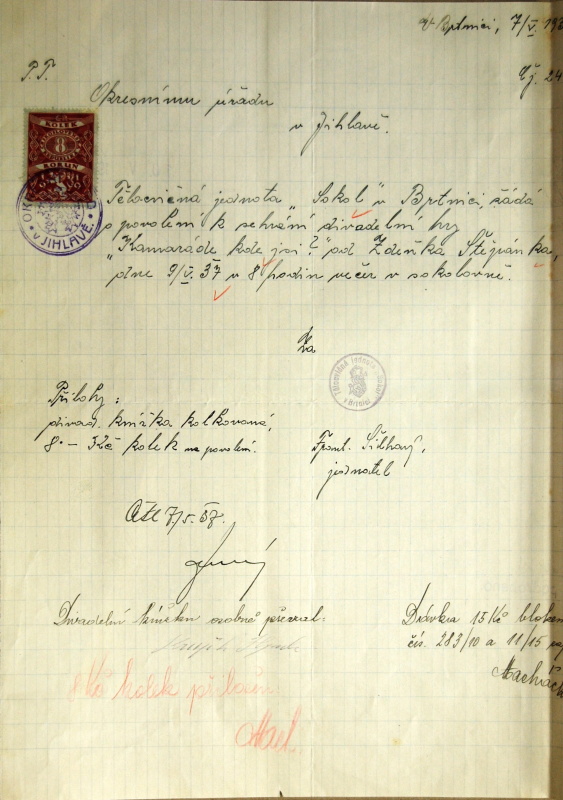 V Brtnici, 7/V. 193
P.T.
Čj. 24
Okresnímu úřadu
v Jihlavě.
KOLEK
8
KORUN
OK
V JIHLAVĚ
Tělocvičná jednota „Sokol" v Brtnici, žádá
o povolení k sehrání divadelní hry
„Kamaráde kde jsi?" od Zdeňka Štěpánka,
dne 9/V. 37 v 8 hodin večer v sokolovně.
Za
Tělocvičná jednota Sokol
v Brtnici
Přílohy:
divad. knížka kolkovaná,
8.– Kč kolek na povolení.
Frant. Šilhavý,
jednatel
7./5. 37.
Divadelní knížku osobně převzal:
Dávka 15 Kč bloken
čís. 283/10 a 11/15
8 Kč kolek přiložen